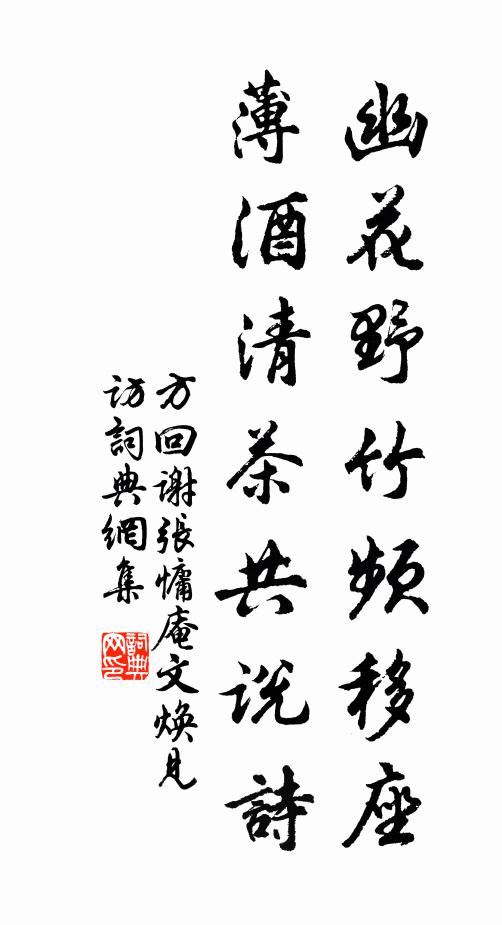 幽花野竹頻移座
薄酒清茶共説詩
方回謝張慵庵文煥見
訪詞典網集
詞典网印